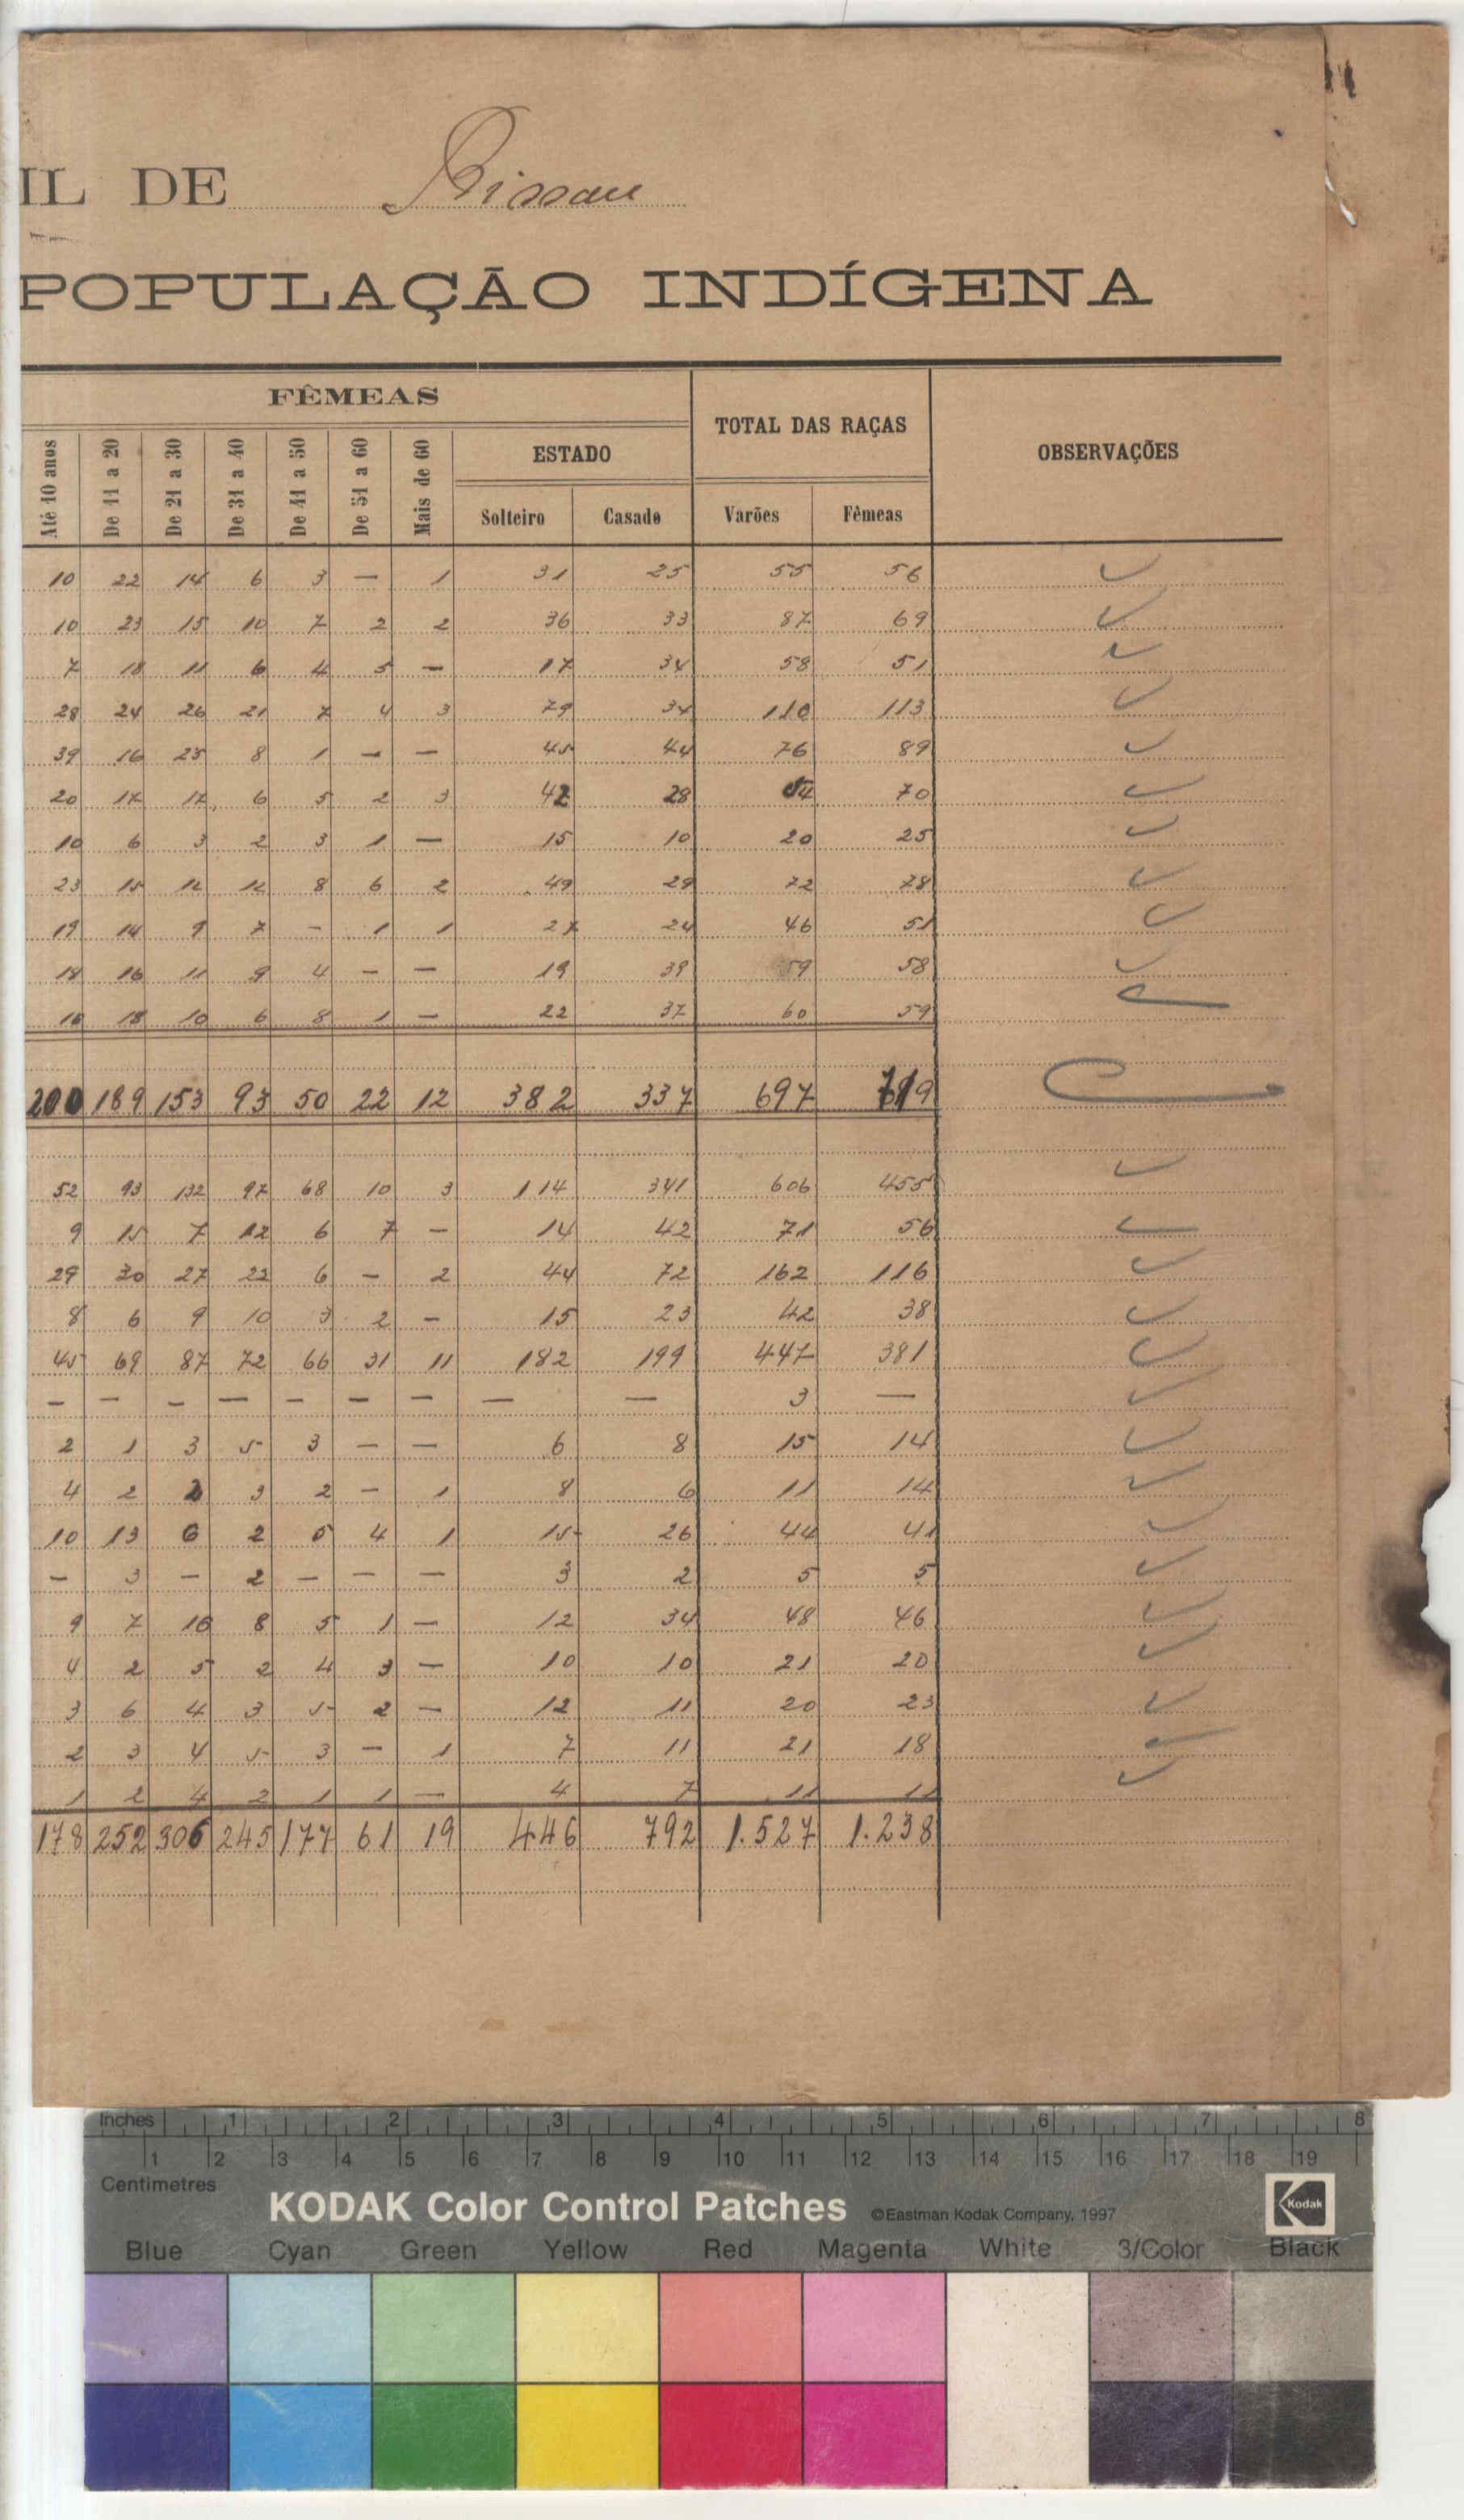 IL DE Bissau
POPULAÇÃO INDÍGENA
FÊMEAS
TOTAL DAS RAÇAS
OBSERVAÇÕES
ESTADO
Até 10 anos De 11 a 20 De 21 a 30 De 31 a 40 De 41 a 50 De 51 a 60 Mais de 60 Solteiro Casado Varões Fêmeas
10 22 14 6 3 — 1 31 25 55 56
10 23 15 10 7 2 2 36 33 87 69
7 18 11 6 4 5 — 17 34 58 51
28 24 26 21 7 4 3 79 34 110 113
39 16 25 8 1 — — 45 44 76 89
20 17 17 6 5 2 3 42 28 54 70
10 6 3 2 3 1 — 15 10 20 25
23 15 12 12 8 6 2 49 29 72 78
19 14 9 7 - 1 1 27 24 46 51
18 16 11 9 4 — — 19 39 59 58
16 18 10 6 8 1 — 22 37 60 59
200 189 153 93 50 22 12 382 337 697 719
52 93 132 97 68 10 3 114 341 606 455
9 15 7 12 6 7 — 14 42 71 56
29 30 27 22 6 — 2 44 72 162 116
8 6 9 10 3 2 — 15 23 42 38
45 69 87 72 66 31 11 182 199 447 381
— — — — — — — — — 3 —
2 1 3 5 3 — — 6 8 15 14
4 2 2 3 2 — 1 8 6 11 14
10 13 6 2 5 4 1 15 26 44 41
— 3 — 2 — — — 3 2 5 5
9 7 16 8 5 1 — 12 34 48 46
4 2 5 2 4 3 — 10 10 21 20
3 6 4 3 5 2 — 12 11 20 23
2 3 4 5 3 — 1 7 11 21 18
1 2 4 2 1 1 — 4 7 11 11
178 252 306 245 177 61 19 446 792 1.527 1.238
Inches 1 2 3 4 5 6 7 8
1 2 3 4 5 6 7 8 9 10 11 12 13 14 15 16 17 18 19
Centimetres
KODAK Color Control Patches ©Eastman Kodak Company, 1997 Kodak
Blue Cyan Green Yellow Red Magenta White 3/Color Black